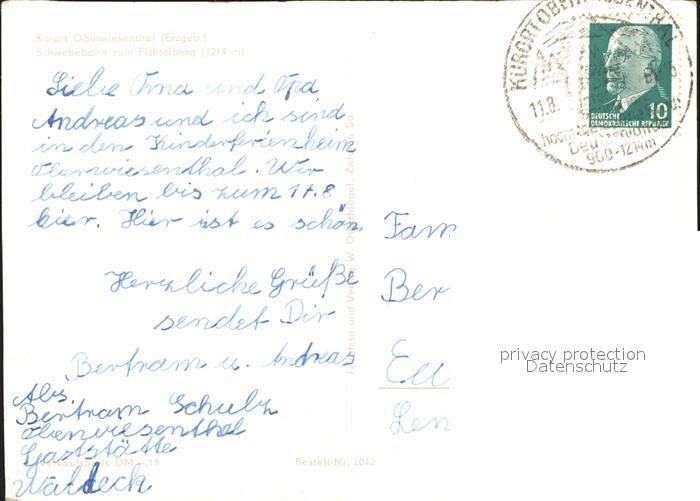 Kurort Oberwiesenthal (Erzgeb.)
Schwebebahn zum Fichtelberg (1214 m)
Liebe Oma und Opa
Andreas und ich sind
in den Kinderferienheim
Oberwiesenthal. Wir
bleiben bis zum 17.8
hier. Hier ist es schön.
Herzliche Grüße
sendet Dir
Bertram u. Andreas
Abs.
Bertram Schulz
Oberwiesenthal
Gaststätte
Waldeck
Verkaufspreis DM -,15
Bestell-Nr. 1042
Fam
Ber
Len
KURORT OBERWIESENTHAL
11.8.
900-1214m
10
DEUTSCHE
DEMOKRATISCHE REPUBLIK
privacy protection
Datenschutz